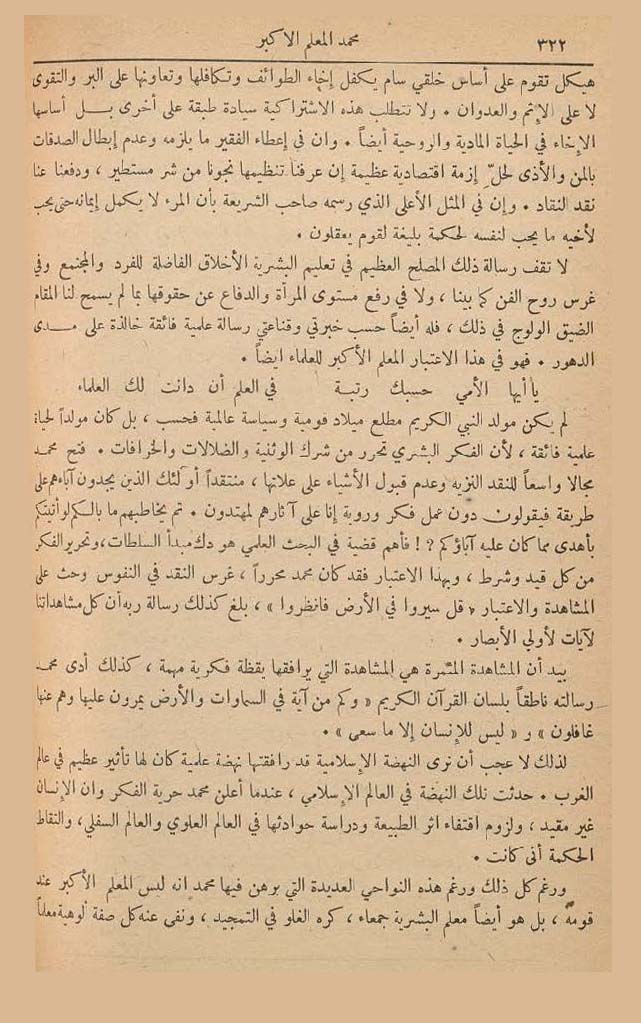 ٣٢٢ محمد المعلم الاكبر
هيكل تقوم على أساس خلقي سام يكفل إخاء الطوائف وتكافلها وتعاونها على البر والتقوى
لا على الإثم والعدوان . ولا تتطلب هذه الاشتراكية سيادة طبقة على أخرى بل أساسها
الإخاء في الحياة المادية والروحية أيضاً . وان في إعطاء الفقير ما يلزمه وعدم إبطال الصدقات
بالمن والأذى لحلّ إزمة اقتصادية عظيمة إن عرفنا تنظيمها نجونا من شر مستطير ، ودفعنا عنا
نقد النقاد . وإن في المثل الأعلى الذي رسمه صاحب الشريعة بأن المرء لا يكمل إيمانه حتى يحب
لأخيه ما يحب لنفسه لحكمة بليغة لقوم يعقلون .
لا تقف رسالة ذلك المصلح العظيم في تعليم البشرية الأخلاق الفاضلة للفرد والمجتمع وفي
غرس روح الفن كما بينا ، ولا في رفع مستوى المرأة والدفاع عن حقوقها بما لم يسمح لنا المقام
الضيق الولوج في ذلك ، فله أيضاً حسب خبرتي وقناعتي رسالة علمية فائقة خالدة على مدى
الدهور . فهو في هذا الاعتبار المعلم الأكبر للعلماء ايضاً .
يا أيها الأمي حسبك رتبة في العلم أن دانت لك العلماء
لم يكن مولد النبي الكريم مطلع ميلاد قومية وسياسة عالمية فحسب ، بل كان مولداً لحياة
علمية فائقة ، لأن الفكر البشري تحرر من شرك الوثنية والضلالات والخرافات . فتح محمد
مجالا واسعاً للنقد النزيه وعدم قبول الأشياء على علاتها ، منتقداً أولئك الذين يجدون آباءهم على
طريقة فيقولون دون عمل فكر وروية إنا على آثارهم لمهتدون . ثم يخاطبهم ما بالكم لو أتيتكم
بأهدى مما كان عليه آباؤكم ؟ ! فأهم قضية في البحث العلمي هو دك مبدأ السلطات ، وتحرير الفكر
من كل قيد وشرط ، وبهذا الاعتبار فقد كان محمد محرراً ، غرس النقد في النفوس وحث على
المشاهدة والاعتبار « قل سيروا في الأرض فانظروا » ، بلغ كذلك رسالة ربه أن كل مشاهداتنا
لآيات لأولي الأبصار .
بيد أن المشاهدة المثمرة هي المشاهدة التي يرافقها يقظة فكرية مهمة ، كذلك أدى محمد
رسالته ناطقاً بلسان القرآن الكريم « وكم من آية في السماوات والأرض يمرون عليها وهم عنها
غافلون » و « ليس للإنسان إلا ما سعى » .
لذلك لا عجب أن نرى النهضة الإسلامية قد رافقتها نهضة علمية كان لها تأثير عظيم في عالم
الغرب . حدثت تلك النهضة في العالم الإسلامي ، عندما أعلن محمد حرية الفكر وان الإنسان
غير مقيد ، ولزوم اقتفاء اثر الطبيعة ودراسة حوادثها في العالم العلوي والعالم السفلي ، والتقاط
الحكمة أنى كانت .
ورغم كل ذلك ورغم هذه النواحي العديدة التي برهن فيها محمد انه ليس المعلم الأكبر عند
قومه ، بل هو أيضاً معلم البشرية جمعاء ، كره الغلو في التمجيد ، ونفى عنه كل صفة لوهية معلناً